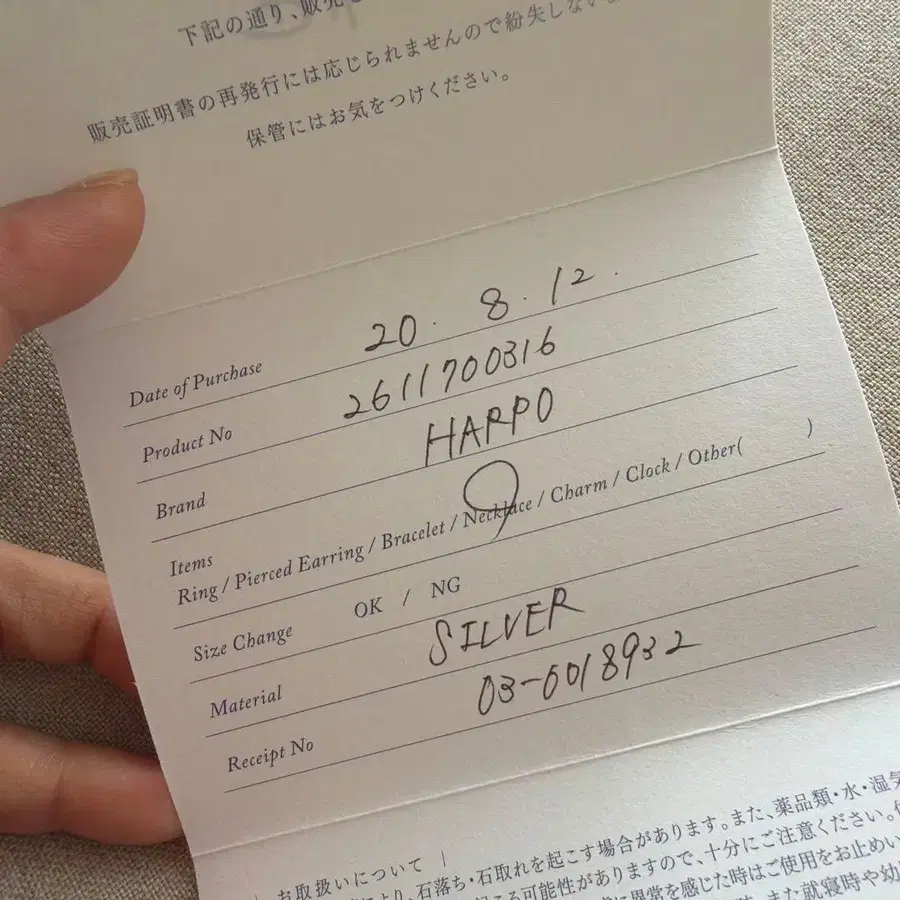 下記の通り、販売
販売証明書の再発行には応じられませんので紛失しない
保管にはお気をつけください。
Date of Purchase 20. 8. 12.
Product No 2611700316
Brand HARPO
Items
Ring / Pierced Earring / Bracelet / Necklace / Charm / Clock / Other( )
Size Change OK / NG
Material SILVER
Receipt No 03-0018932
| お取扱いについて |
より、石落ち・石取れを起こす場合があります。また、薬品類・水・湿気
こる可能性がありますので、十分にご注意ください。
に異常を感じた時はご使用をお止めい
また就寝時や幼